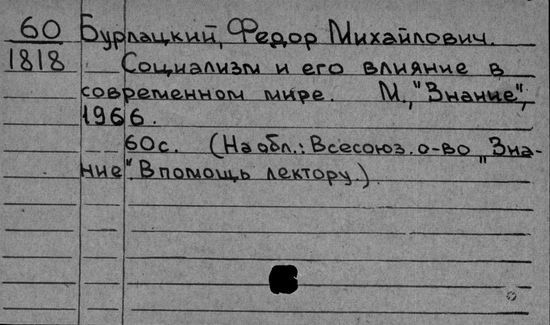 60 Бурлацкий, Федор Михайлович.
1818 Социализм и его влияние в
современном мире. М., "Знание",
1966.
60с. (На обл.: Всесоюз. о-во „Зна-
ние". В помощь лектору.).